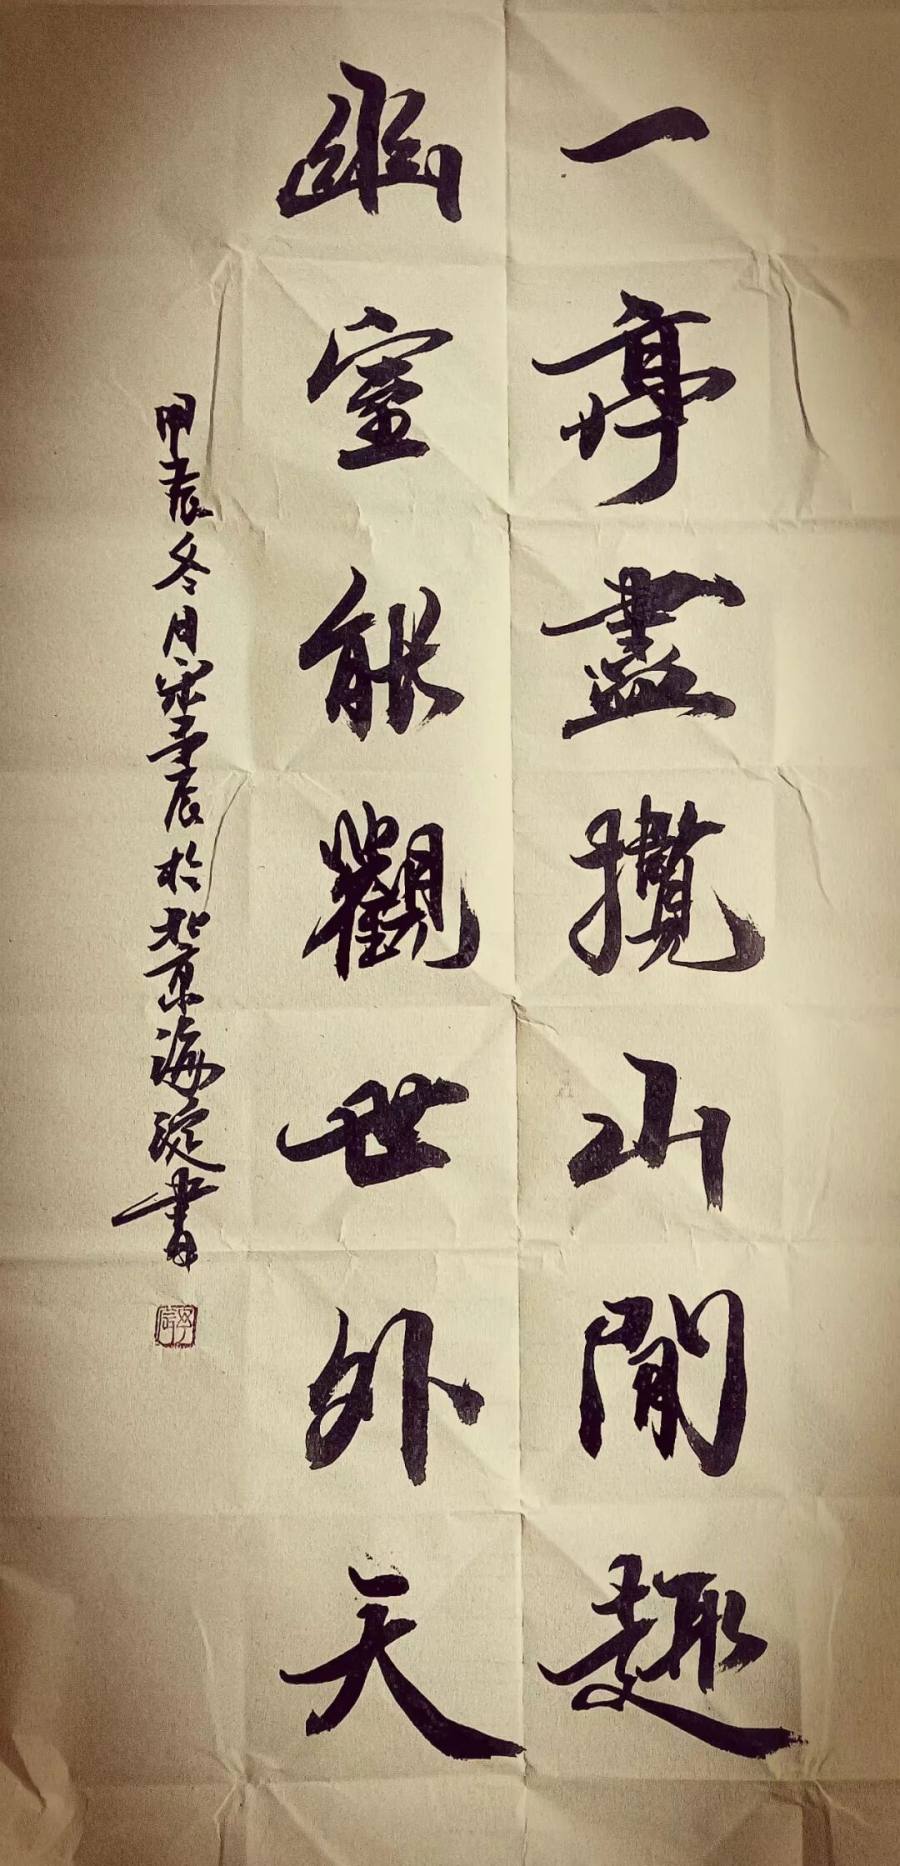 一亭盡攬山閒趣
幽室能觀世外天
甲辰冬月宋孟辰於北京海淀書